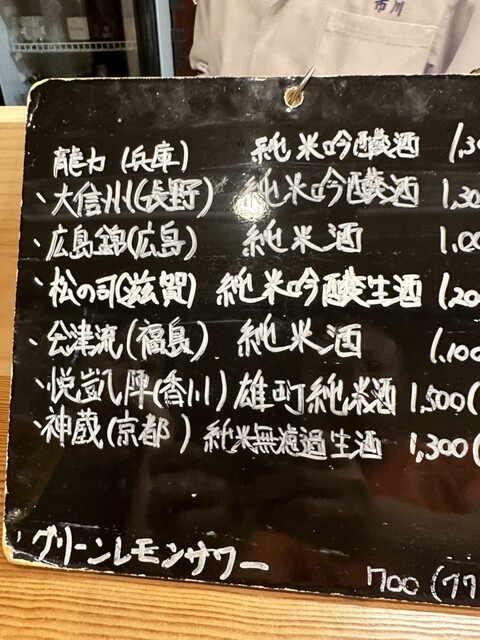 市川
龍力(兵庫) 純米吟醸酒 1,30
・大信州(長野) 純米吟醸酒 1,30
・広島錦(広島) 純米酒 1,00
・松の司(滋賀) 純米吟醸生酒 1,20
・会津流(福島) 純米酒 1,100
・悦凱陣(香川) 雄町純米酒 1,500(
・神蔵(京都) 純米無濾過生酒 1,300(
・グリーンレモンサワー 700(77